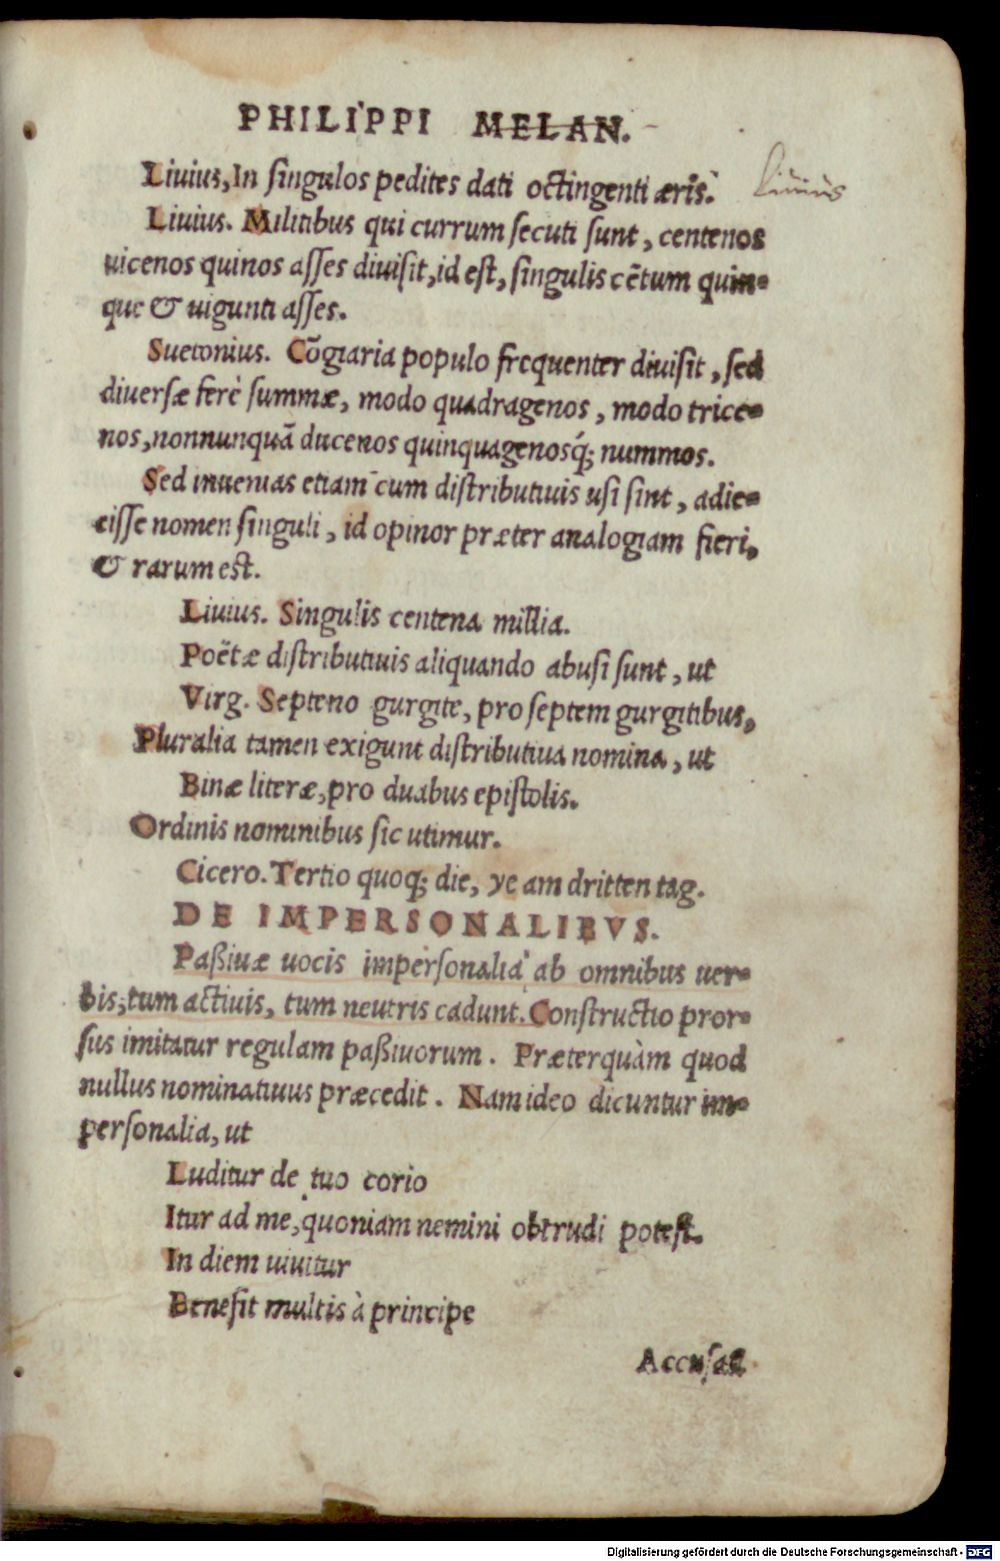 PHILIPPI MELAN.
Liuius, In singulos pedites dati octingenti æris.
Liuius
Liuius. Militibus qui currum secuti sunt, centenos
uicenos quinos asses diuisit, id est, singulis cētum quin-
que & uiginti asses.
Suetonius. Cōgiaria populo frequenter diuisit, sed
diuersæ ferè summæ, modo quadragenos, modo trice-
nos, nonnunquā ducenos quinquagenosq́; nummos.
Sed inuenias etiam cum distributiuis usi sint, adie-
cisse nomen singuli, id opinor præter analogiam fieri,
& rarum est.
Liuius. Singulis centena millia.
Poëtæ distributiuis aliquando abusi sunt, ut
Virg. Septeno gurgite, pro septem gurgitibus,
Pluralia tamen exigunt distributiua nomina, ut
Binæ literæ, pro duabus epistolis.
Ordinis nominibus sic utimur.
Cicero. Tertio quoq; die, ye am dritten tag.
DE IMPERSONALIBVS.
Paßiuæ uocis impersonalia ab omnibus uer-
bis, tum actiuis, tum neutris cadunt. Constructio pror-
sus imitatur regulam paßiuorum. Præterquàm quod
nullus nominatiuus præcedit. Nam ideo dicuntur im-
personalia, ut
Luditur de tuo corio
Itur ad me, quoniam nemini obtrudi potest.
In diem uiuitur
Benefit multis à principe
Accusat
Digitalisierung gefördert durch die Deutsche Forschungsgemeinschaft - DFG